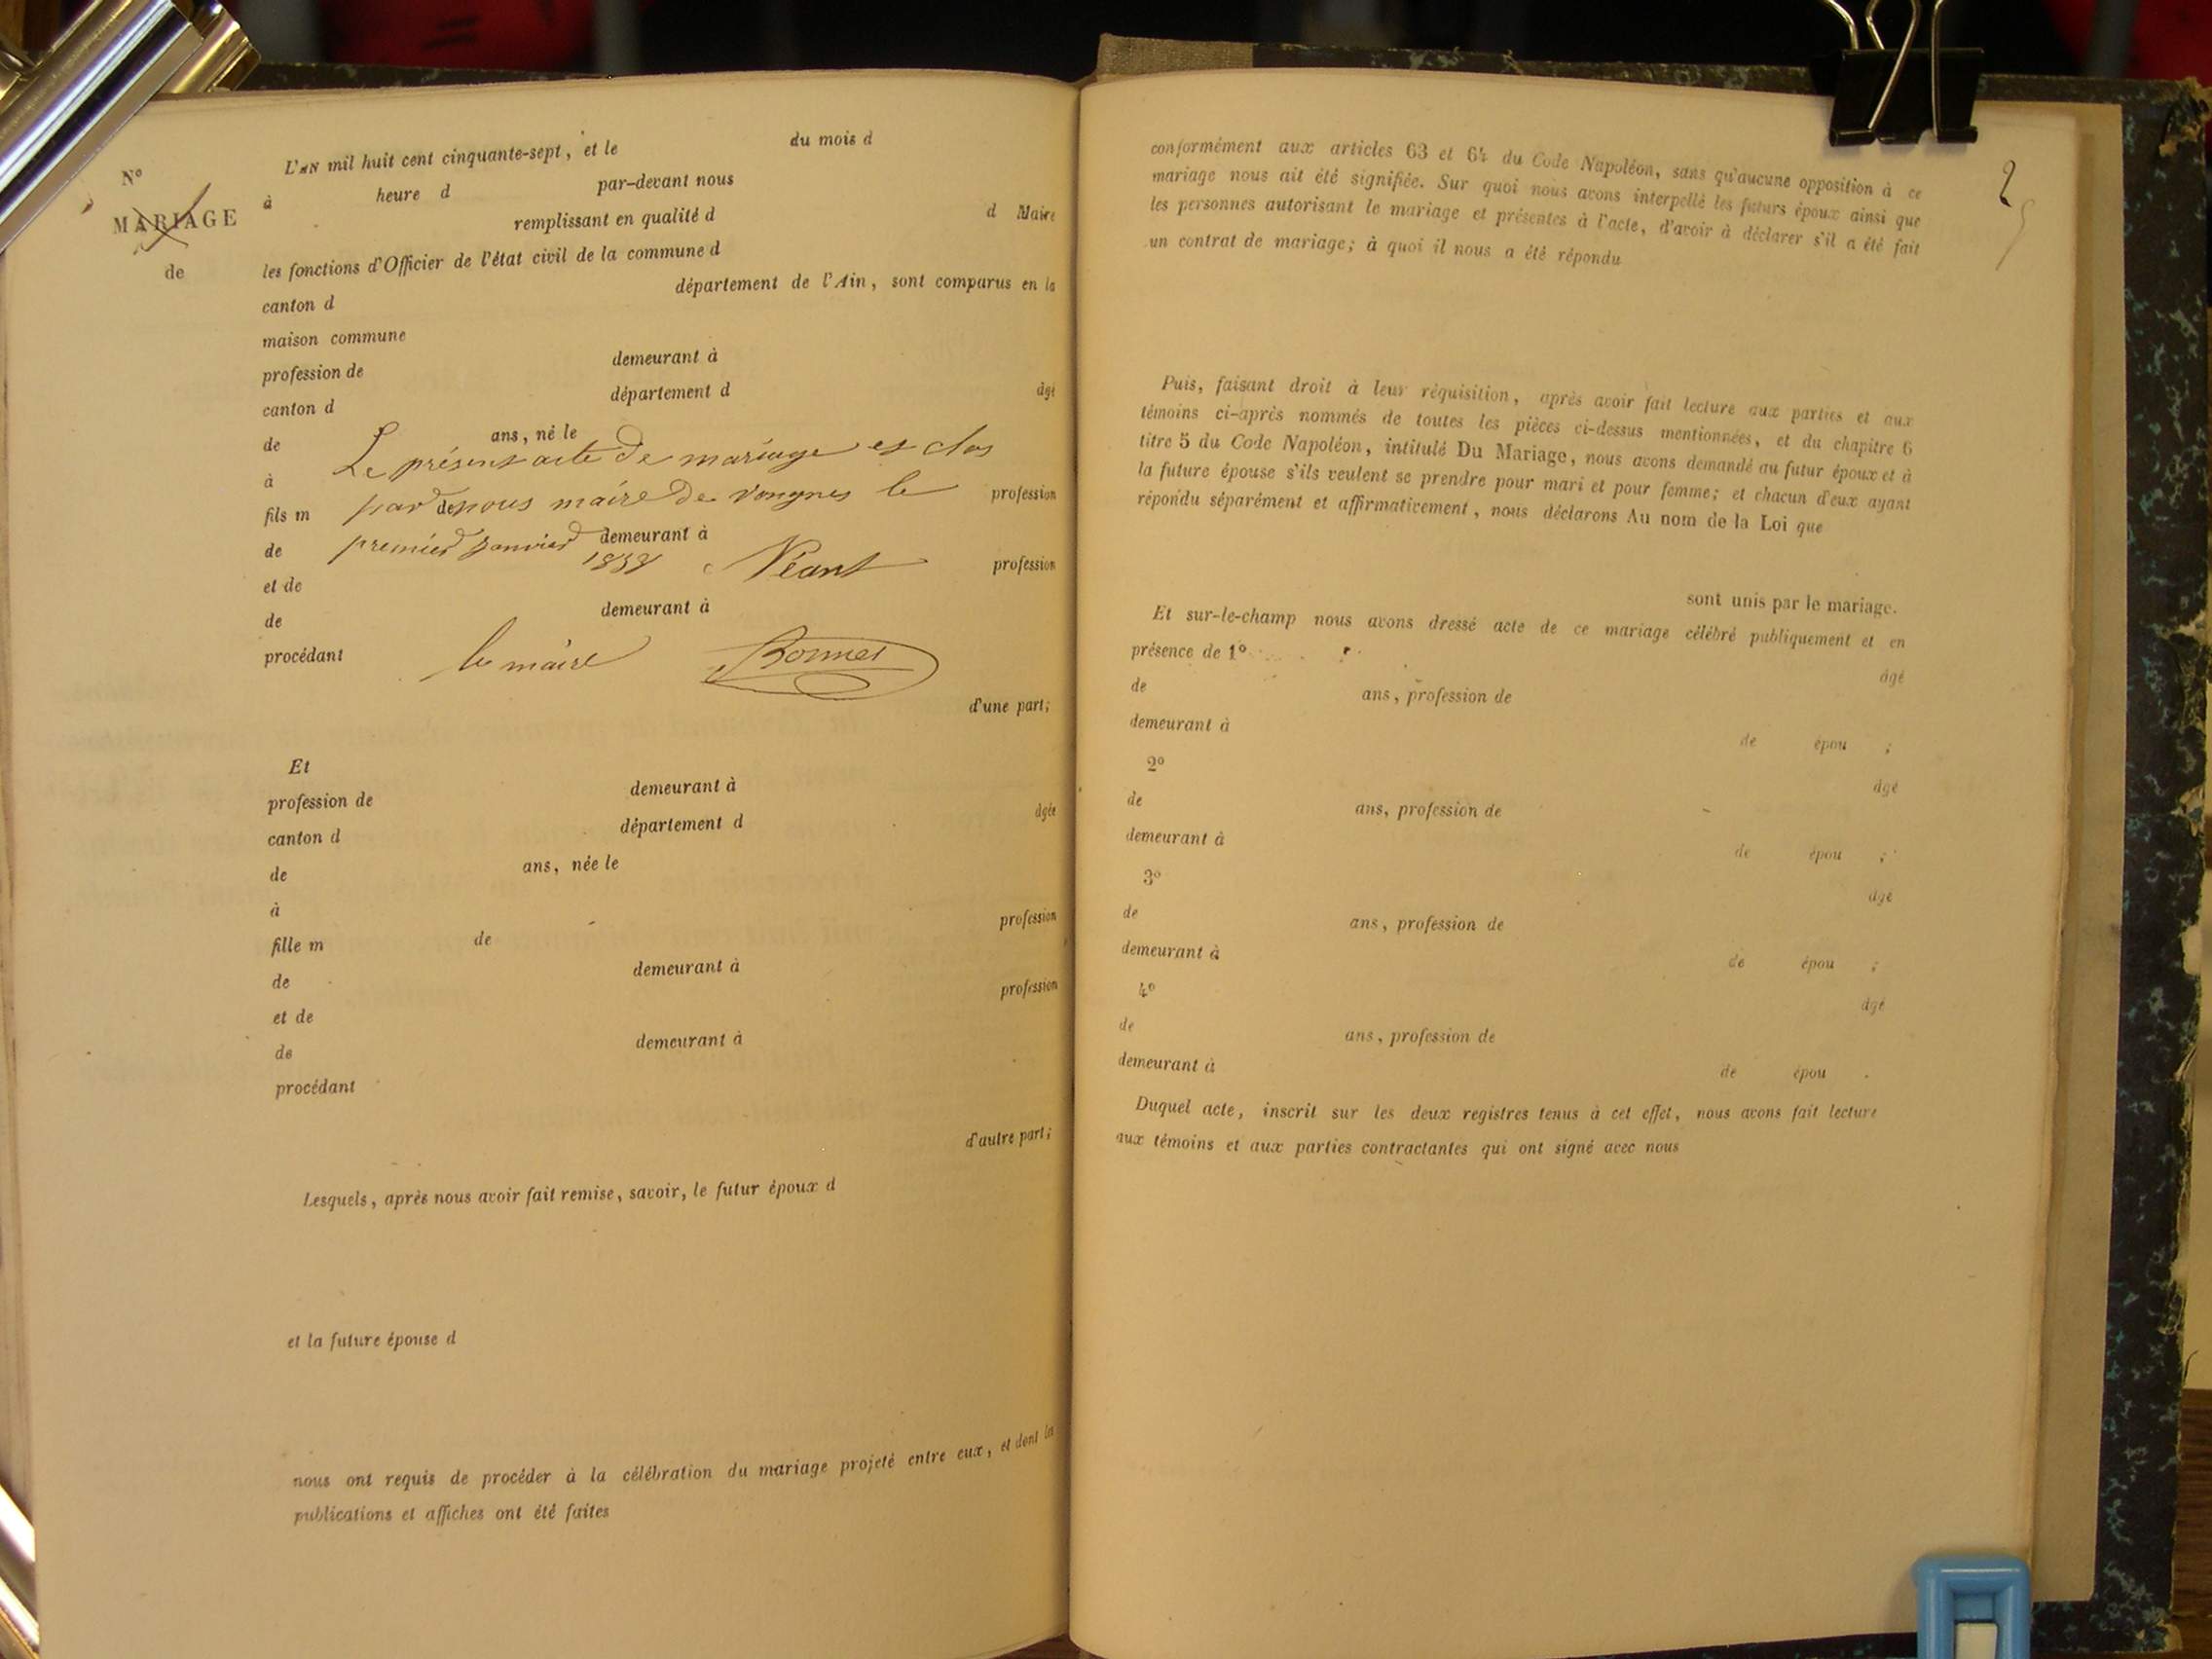 L'AN mil huit cent cinquante-sept, et le du mois d
N°
à heure d par-devant nous
MARIAGE
remplissant en qualité d d Maire
de
les fonctions d'Officier de l'état civil de la commune d
canton d département de l'Ain, sont comparus en la
maison commune
profession de demeurant à
canton d département d âgé
de ans, né le
Le présent acte de mariage est clos
à
par nous maire de Vongnes le
fils m de profession
premier Janvier 1858 Néant
de demeurant à
et de profession
de demeurant à
procédant
le maire Bonnet
d'une part;
Et
profession de demeurant à
canton d département d âgée
de ans, née le
à
fille m de profession
de demeurant à
et de profession
de demeurant à
procédant
d'autre part;
Lesquels, après nous avoir fait remise, savoir, le futur époux d
et la future épouse d
nous ont requis de procéder à la célébration du mariage projeté entre eux, et dont les
publications et affiches ont été faites
2
conformément aux articles 63 et 64 du Code Napoléon, sans qu'aucune opposition à ce
mariage nous ait été signifiée. Sur quoi nous avons interpellé les futurs époux ainsi que
les personnes autorisant le mariage et présentes à l'acte, d'avoir à déclarer s'il a été fait
un contrat de mariage; à quoi il nous a été répondu
Puis, faisant droit à leur réquisition, après avoir fait lecture aux parties et aux
témoins ci-après nommés de toutes les pièces ci-dessus mentionnées, et du chapitre 6
titre 5 du Code Napoléon, intitulé Du Mariage, nous avons demandé au futur époux et à
la future épouse s'ils veulent se prendre pour mari et pour femme; et chacun d'eux ayant
répondu séparément et affirmativement, nous déclarons Au nom de la Loi que
sont unis par le mariage.
Et sur-le-champ nous avons dressé acte de ce mariage célébré publiquement et en
présence de 1° âgé
de ans, profession de
demeurant à de épou ;
2° âgé
de ans, profession de
demeurant à de épou ;
3° âgé
de ans, profession de
demeurant à de épou ;
4° âgé
de ans, profession de
demeurant à de épou .
Duquel acte, inscrit sur les deux registres tenus à cet effet, nous avons fait lecture
aux témoins et aux parties contractantes qui ont signé avec nous